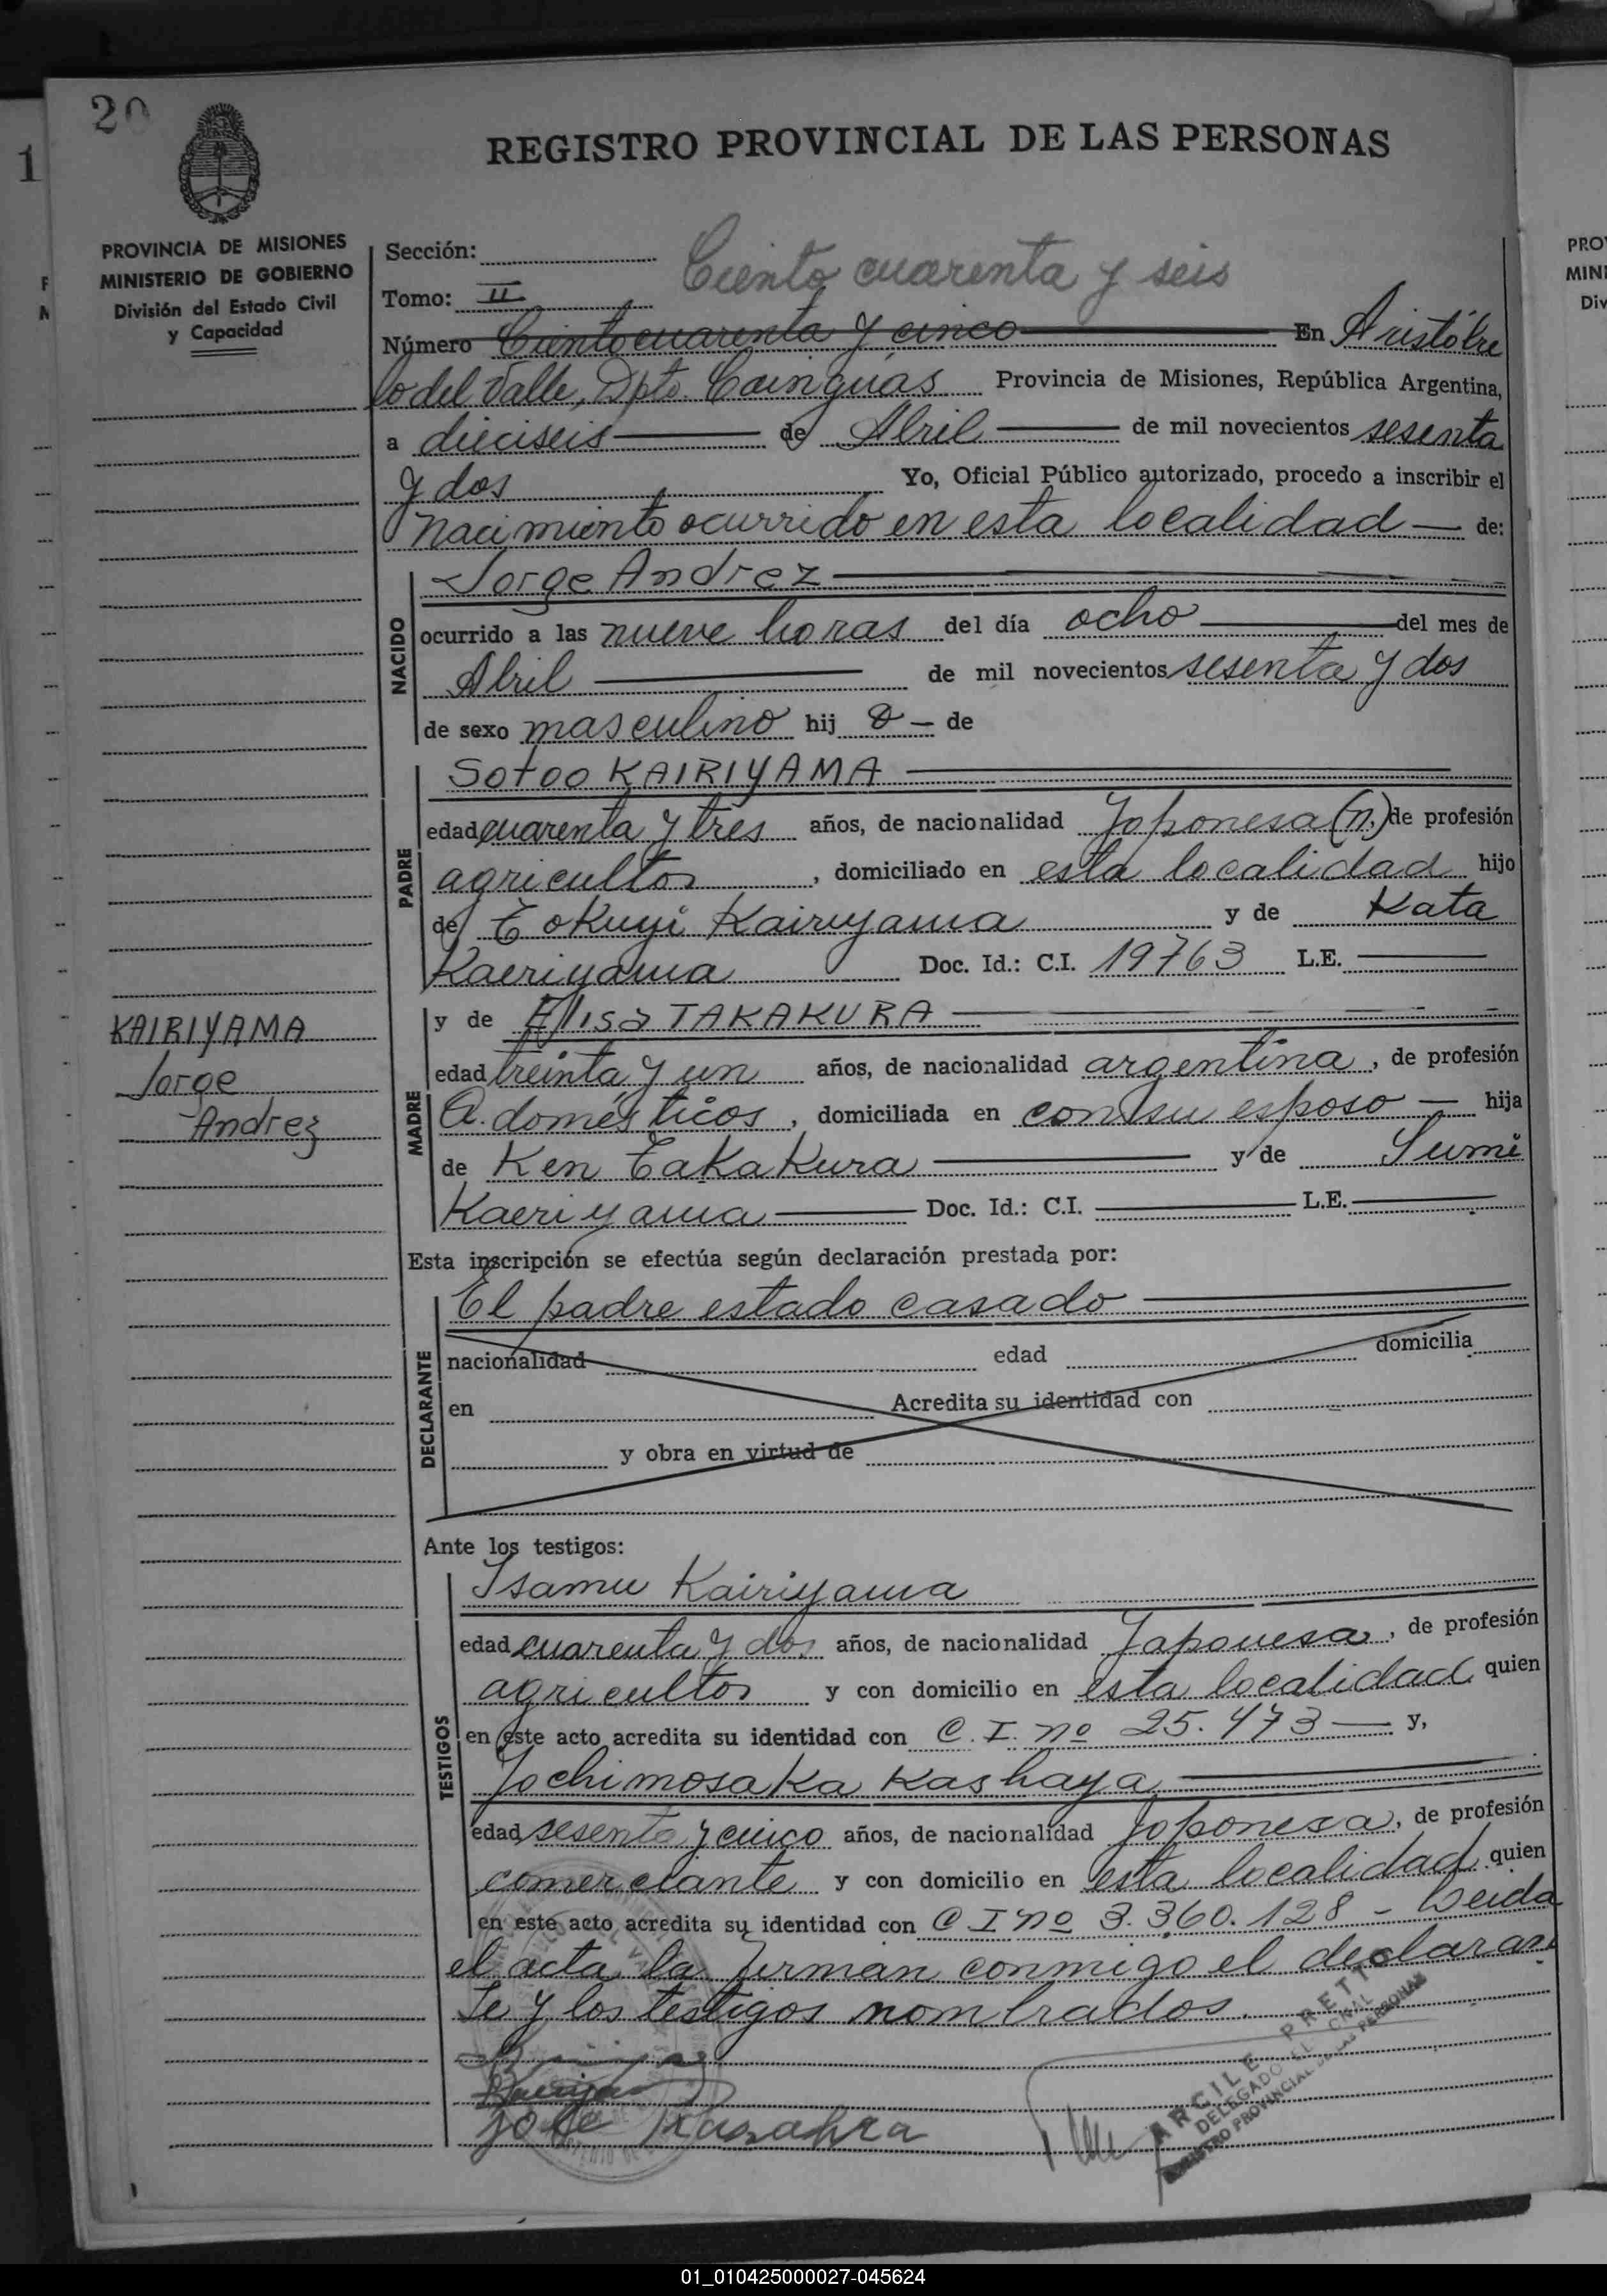 20
REGISTRO PROVINCIAL DE LAS PERSONAS
PROVINCIA DE MISIONES
MINISTERIO DE GOBIERNO
División del Estado Civil
y Capacidad
Sección:
Ciento cuarenta y seis
Tomo: II
Número Ciento cuarenta y cinco En Aristóbu
lo del Valle, Dpto. Cainguas Provincia de Misiones, República Argentina,
a dieciseis de Abril de mil novecientos sesenta
y dos Yo, Oficial Público autorizado, procedo a inscribir el
nacimiento ocurrido en esta localidad de:
NACIDO
Jorge Andrez
ocurrido a las nueve horas del día ocho del mes de
Abril de mil novecientos sesenta y dos
de sexo masculino hij o de
PADRE
Sotoo KAIRIYAMA
edad cuarenta y tres años, de nacionalidad Japonesa (n.) de profesión
agricultor, domiciliado en esta localidad hijo
de Tokuyi Kairiyama y de Kata
Kaeriyama Doc. Id.: C.I. 19763 L.E.
KAIRIYAMA
Jorge
Andrez
MADRE
y de Elisa TAKAKURA
edad treinta y un años, de nacionalidad argentina, de profesión
Q. domésticos, domiciliada en con su esposo hija
de Ken Takakura y de Sumi
Kaeriyama Doc. Id.: C.I. L.E.
Esta inscripción se efectúa según declaración prestada por:
DECLARANTE
El padre estado casado
nacionalidad edad domicilia
en Acredita su identidad con
y obra en virtud de
Ante los testigos:
TESTIGOS
Isamu Kairiyama
edad cuarenta y dos años, de nacionalidad Japonesa, de profesión
agricultor y con domicilio en esta localidad quien
en este acto acredita su identidad con C.I. nº 25.473 y,
Jochimosaka Kashaya
edad sesenta y cinco años, de nacionalidad Japonesa, de profesión
comerciante y con domicilio en esta localidad quien
en este acto acredita su identidad con C I nº 3.360.128 - Leida
el acta la firman conmigo el declaran
te y los testigos nombrados.
ARGILE PRETTO
DELEGADO
REGISTRO PROVINCIAL DE LAS PERSONAS
01_010425000027-045624